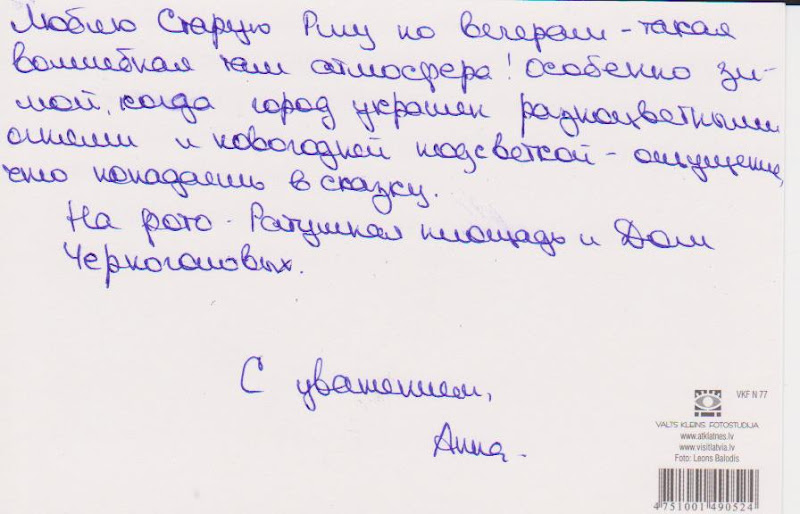 Люблю Старую Ригу по вечерам - такая
волшебная там атмосфера! Особенно зи-
мой, когда город украшен разноцветными
огнями и новогодней подсветкой - ощущение,
что попадаешь в сказку.
На фото - Ратушная площадь и Дом
Черноголовых.
С уважением,
Анна.
VKF N 77
VALTS KLEINS FOTOSTUDIJA
www.atklatnes.lv
www.visitlatvia.lv
Foto: Leons Balodis
4 751001 490524